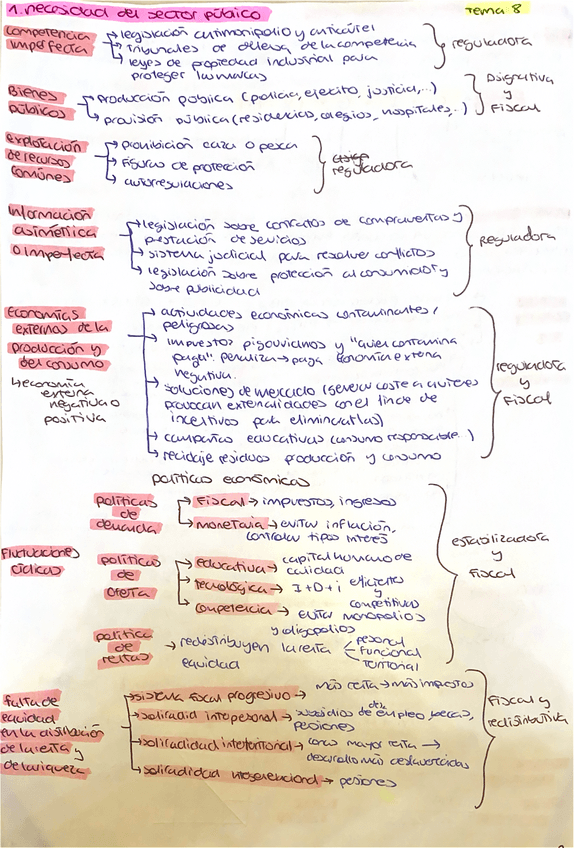 1. necesidad del sector público
Tema 8
competencia imperfecta
→ legislación antimonopolio y anticártel
→ tribunales de defensa de la competencia
→ leyes de propiedad industrial para
proteger las marcas
reguladora
Bienes públicos
→ producción pública (policia, ejército, justicia,...)
→ provisión pública (residencias, colegios, hospitales,..)
Asignativa
y
Fiscal
explotación
de recursos
comúnes
→ prohibición caza o pesca
→ figuras de protección
→ autorregulaciones
reguladora
Información
asimétrica
o imperfecta
→ legislación sobre contratos de compraventas y
prestación de servicios
→ sistema judicial para resolver conflictos
→ legislación sobre protección al consumidor y
sobre publicidad
reguladora
Economías
externas de la
producción y
del consumo
↳ economía
externa
negativa o
positiva
→ actividades económicas contaminantes /
peligrosas
→ impuestos pigouvianos y "quien contamina
paga". penaliza → paga economía externa
negativa.
→ soluciones de mercado (generar coste a quienes
provocan externalidades con el fin de
incentivos para eliminarlas)
→ campañas educativas (consumo responsable..)
→ reciclaje residuos producción y consumo
reguladora
y
Fiscal
políticas económicas
Fluctuaciones
cíclicas
políticas
de
demanda
→ Fiscal → impuestos, ingresos
→ monetaria → evitar inflación,
controlar tipos interés
políticas
de
oferta
→ educativa → capital humano de
calidad
→ tecnológica → I+D+i eficientes
y
competitivas
→ competencia → evitar monopolios
y oligopolios
política
de
rentas
→ redistribuyen la renta
equidad
personal
funcional
territorial
estabilizadora
y
Fiscal
falta de
equidad
en la distribución
de la renta y
de la riqueza
→ sistema fiscal progresivo → más renta → más impuestos
→ solidaridad interpersonal → subsidios de empleo, becas,
pensiones
→ solidaridad interterritorial → ccaa mayor renta →
desarrollo más desfavorecidas
→ solidaridad intergeneracional → pensiones
Fiscal y
redistributiva